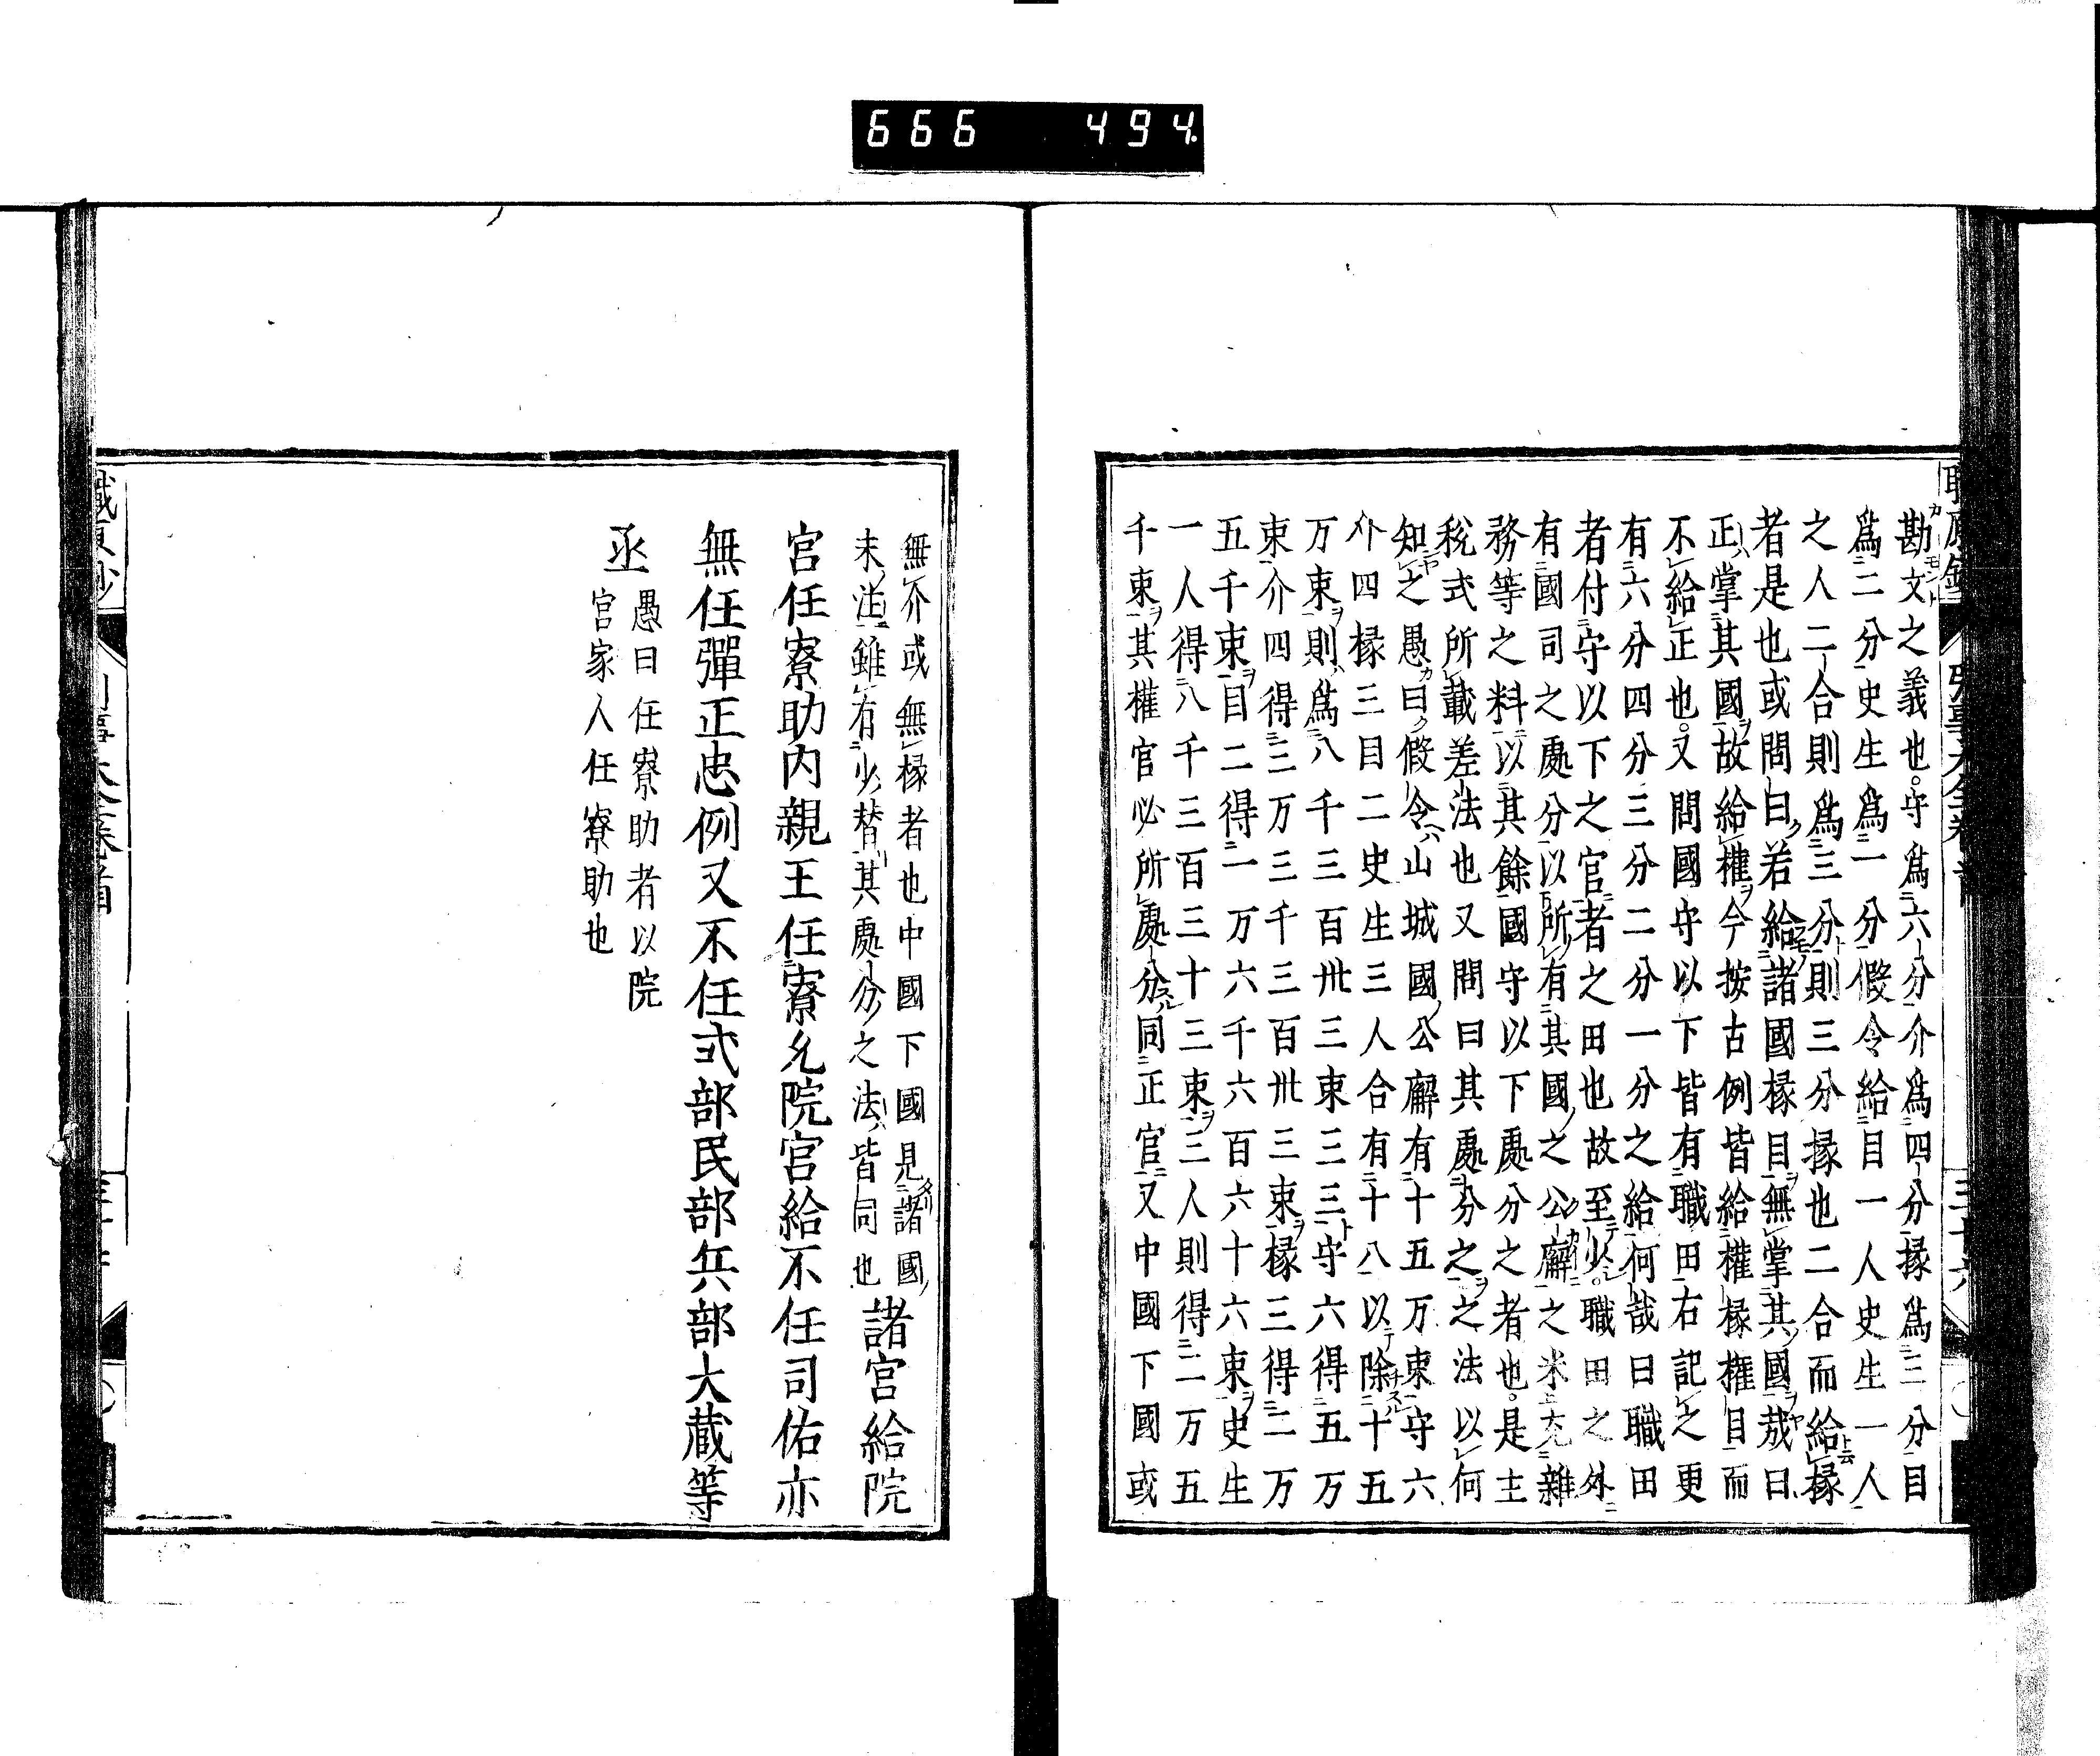 666 494
勘文之義也守爲六分介爲四分掾爲三分目
爲二分史生爲一分假令給目一人史生一人
之人二合則爲三分則三分掾也二合而給掾
者是也或問曰若給諸國掾目無掌其國哉曰
正掌其國故給權今按古例皆給權掾權目而
不給正也又問國守以下皆有職田右記之更
有六分四分三分二分一分之給何哉曰職田
者付守以下之官者之田也故至少職田之外
有國司之處分以所有其國之公廨之米充雜
務等之料以其餘國守以下處分之者也是主
稅式所載差法也又問曰其處分之之法以何
知之愚曰假令山城國公廨有十五万束守六
介四掾三目二史生三人合有十八以除十五
万束則爲八千三百卅三束三三守六得五万
束介四得三万三千三百卅三束掾三得二万
五千束目二得一万六千六百六十六束史生
一人得八千三百三十三束三人則得二万五
千束其權官必所處分同正官又中國下國或
無介或無掾者也中國下國見諸國
未注雖有少替其處分之法皆同也
諸宮給院
宮任寮助內親王任寮允院宮給不任司佑亦
無任彈正忠例又不任式部民部兵部大蔵等
丞
愚曰任寮助者以院
宮家人任寮助也